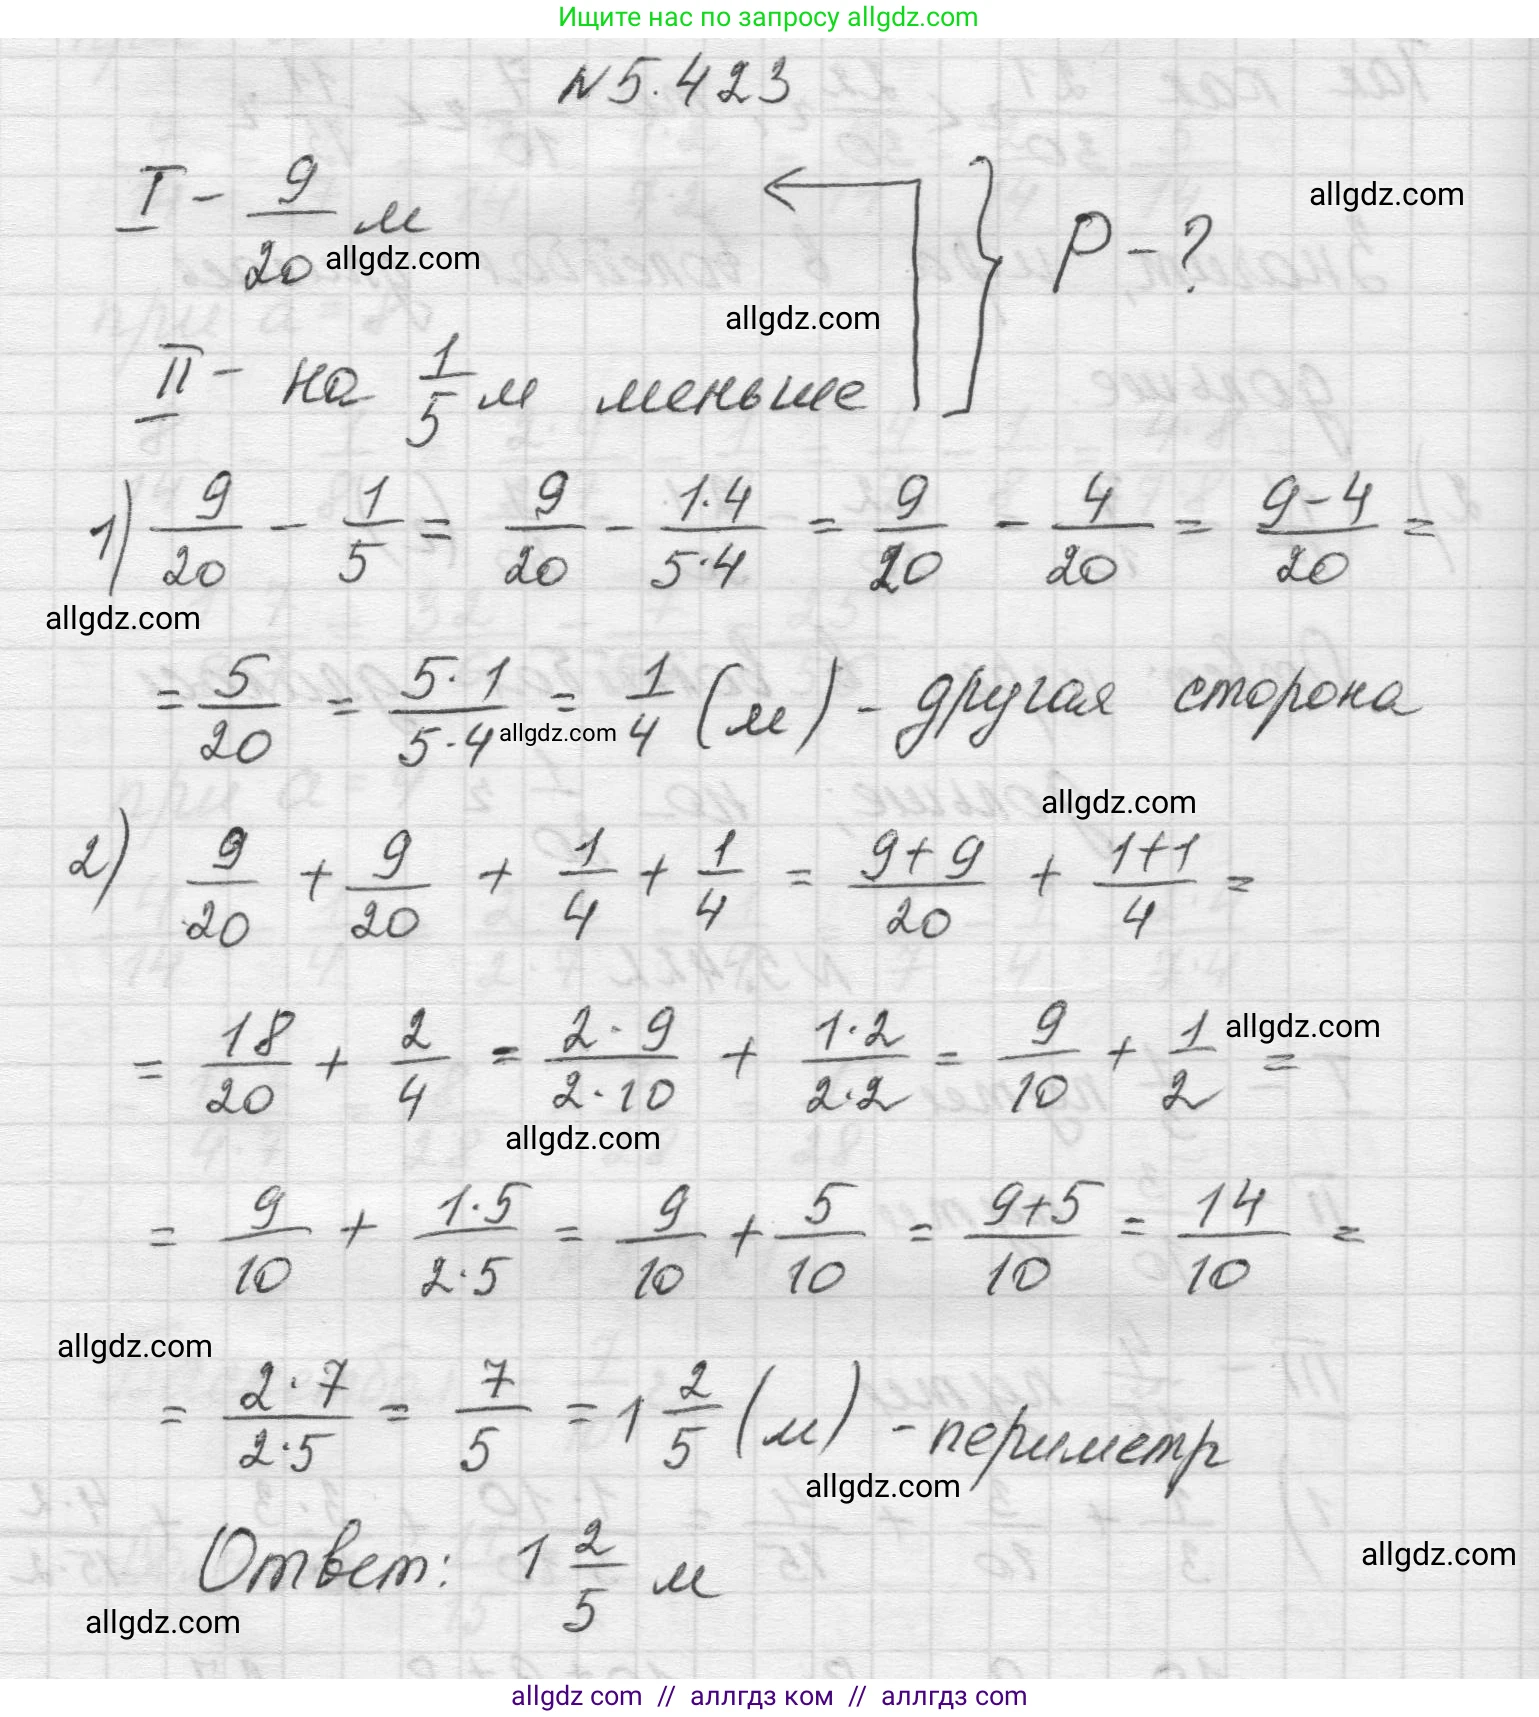 Ищите нас по запросу allgdz.com
N 5.423
I - 9/20 м
allgdz.com
allgdz.com
P - ?
allgdz.com
II - на 1/5 м меньше
1) 9/20 - 1/5 = 9/20 - 1·4/5·4 = 9/20 - 4/20 = 9-4/20 =
allgdz.com
= 5/20 = 5·1/5·4 = 1/4 (м) - другая сторона
allgdz.com
allgdz.com
2) 9/20 + 9/20 + 1/4 + 1/4 = 9+9/20 + 1+1/4 =
= 18/20 + 2/4 = 2·9/2·10 + 1·2/2·2 = 9/10 + 1/2 =
allgdz.com
allgdz.com
= 9/10 + 1·5/2·5 = 9/10 + 5/10 = 9+5/10 = 14/10 =
allgdz.com
= 2·7/2·5 = 7/5 = 1 2/5 (м) - периметр
allgdz.com
Ответ: 1 2/5 м
allgdz.com
allgdz.com
allgdz com // аллгдз ком // allgdz.com